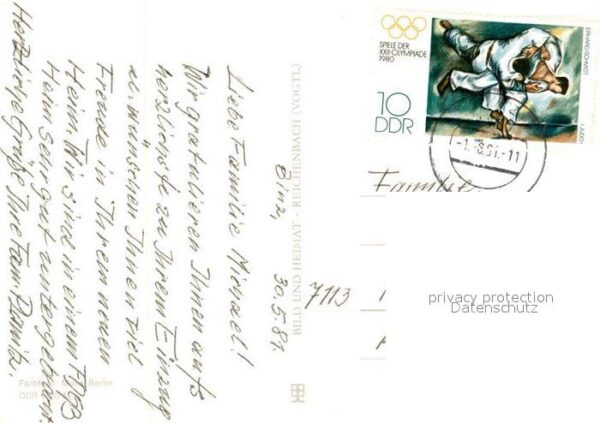 SPIELE DER
XXII. OLYMPIADE
1980
ERHARD SCHMIDT
10
DDR
JUDO
-1.-6.81.-11
Familie
7113
privacy protection
Datenschutz
BILD UND HEIMAT · REICHENBACH (VOGTL)
Binz, 30.5.81.
Liebe Familie
Wir gratulieren Ihnen aufs
herzlichste zu Ihrem Einzug
u. wünschen Ihnen viel
Freude in Ihrem neuen
Heim. Wir sind in einem FDGB
Heim sehr gut untergebracht.
Herzliche Grüße Ihre Fam.
Berlin
DDR